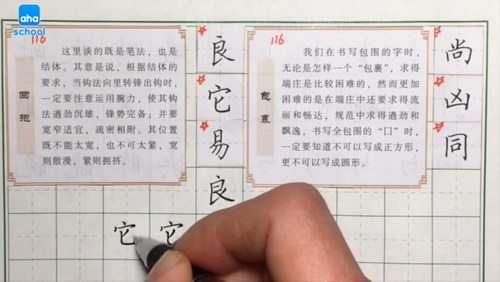 aha
school
116
这里谈的既是笔法，也是
结体，其意是说，根据结体的
要求，当钩法向里转锋出钩时，
一定要注意运用腕力，使其钩
法遒劲沉雄，锋势完备；并要
宽窄适宜，疏密相附。其位置
既不能太宽，也不可太紧，宽
则散漫，紧则拥挤。
回抱
良
它
易
良
116
我们在书写包围的字时，
无论是怎样一个“包裹”，求得
端庄是比较困难的，然而更加
困难的是在端庄中还要求得流
丽和畅达，规范中求得遒劲和
飘逸，书写全包围的“囗”时，
一定要知道不可以写成正方形，
更不可以写成圆形。
包裹
尚
凶
同
它 它